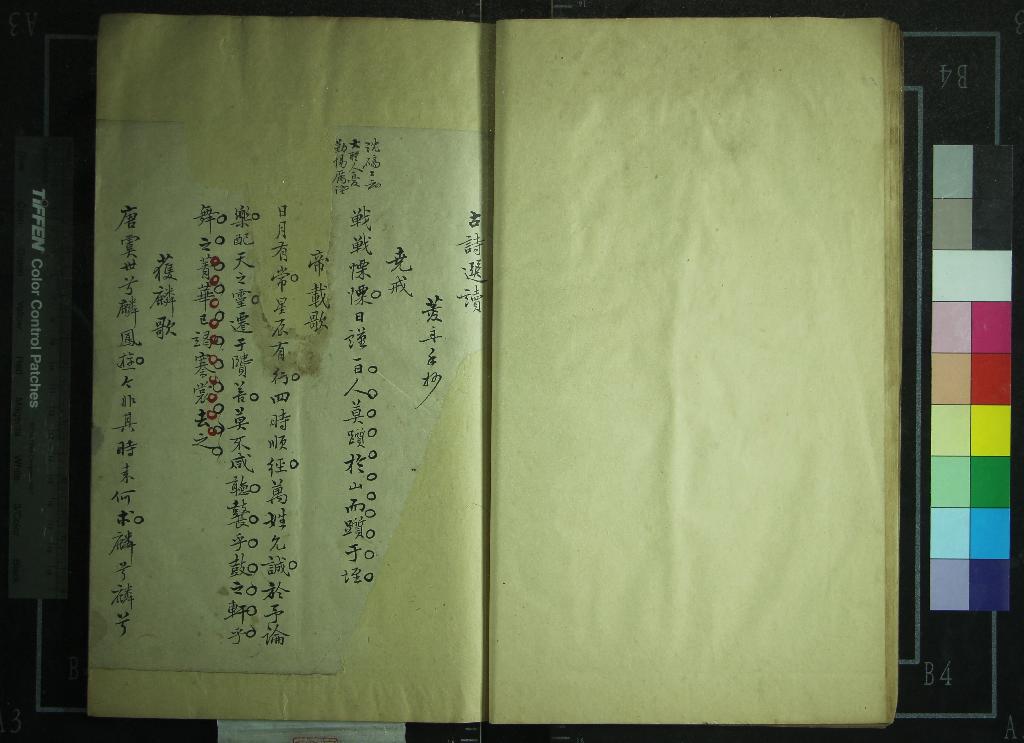 古詩選讀
手抄
堯戒
戰戰慄慄日謹一日人莫躓於山而躓于垤
帝載歌
日月有常星辰有行四時順經萬姓允誠於予論
樂配天之靈遷于賢善莫不咸聽鼚乎鼓之軒乎
舞之菁華已竭褰裳去之
獲麟歌
唐虞世兮麟鳳遊今非其時来何求麟兮麟兮
TIFFEN Color Control Patches
B4
B4
A3